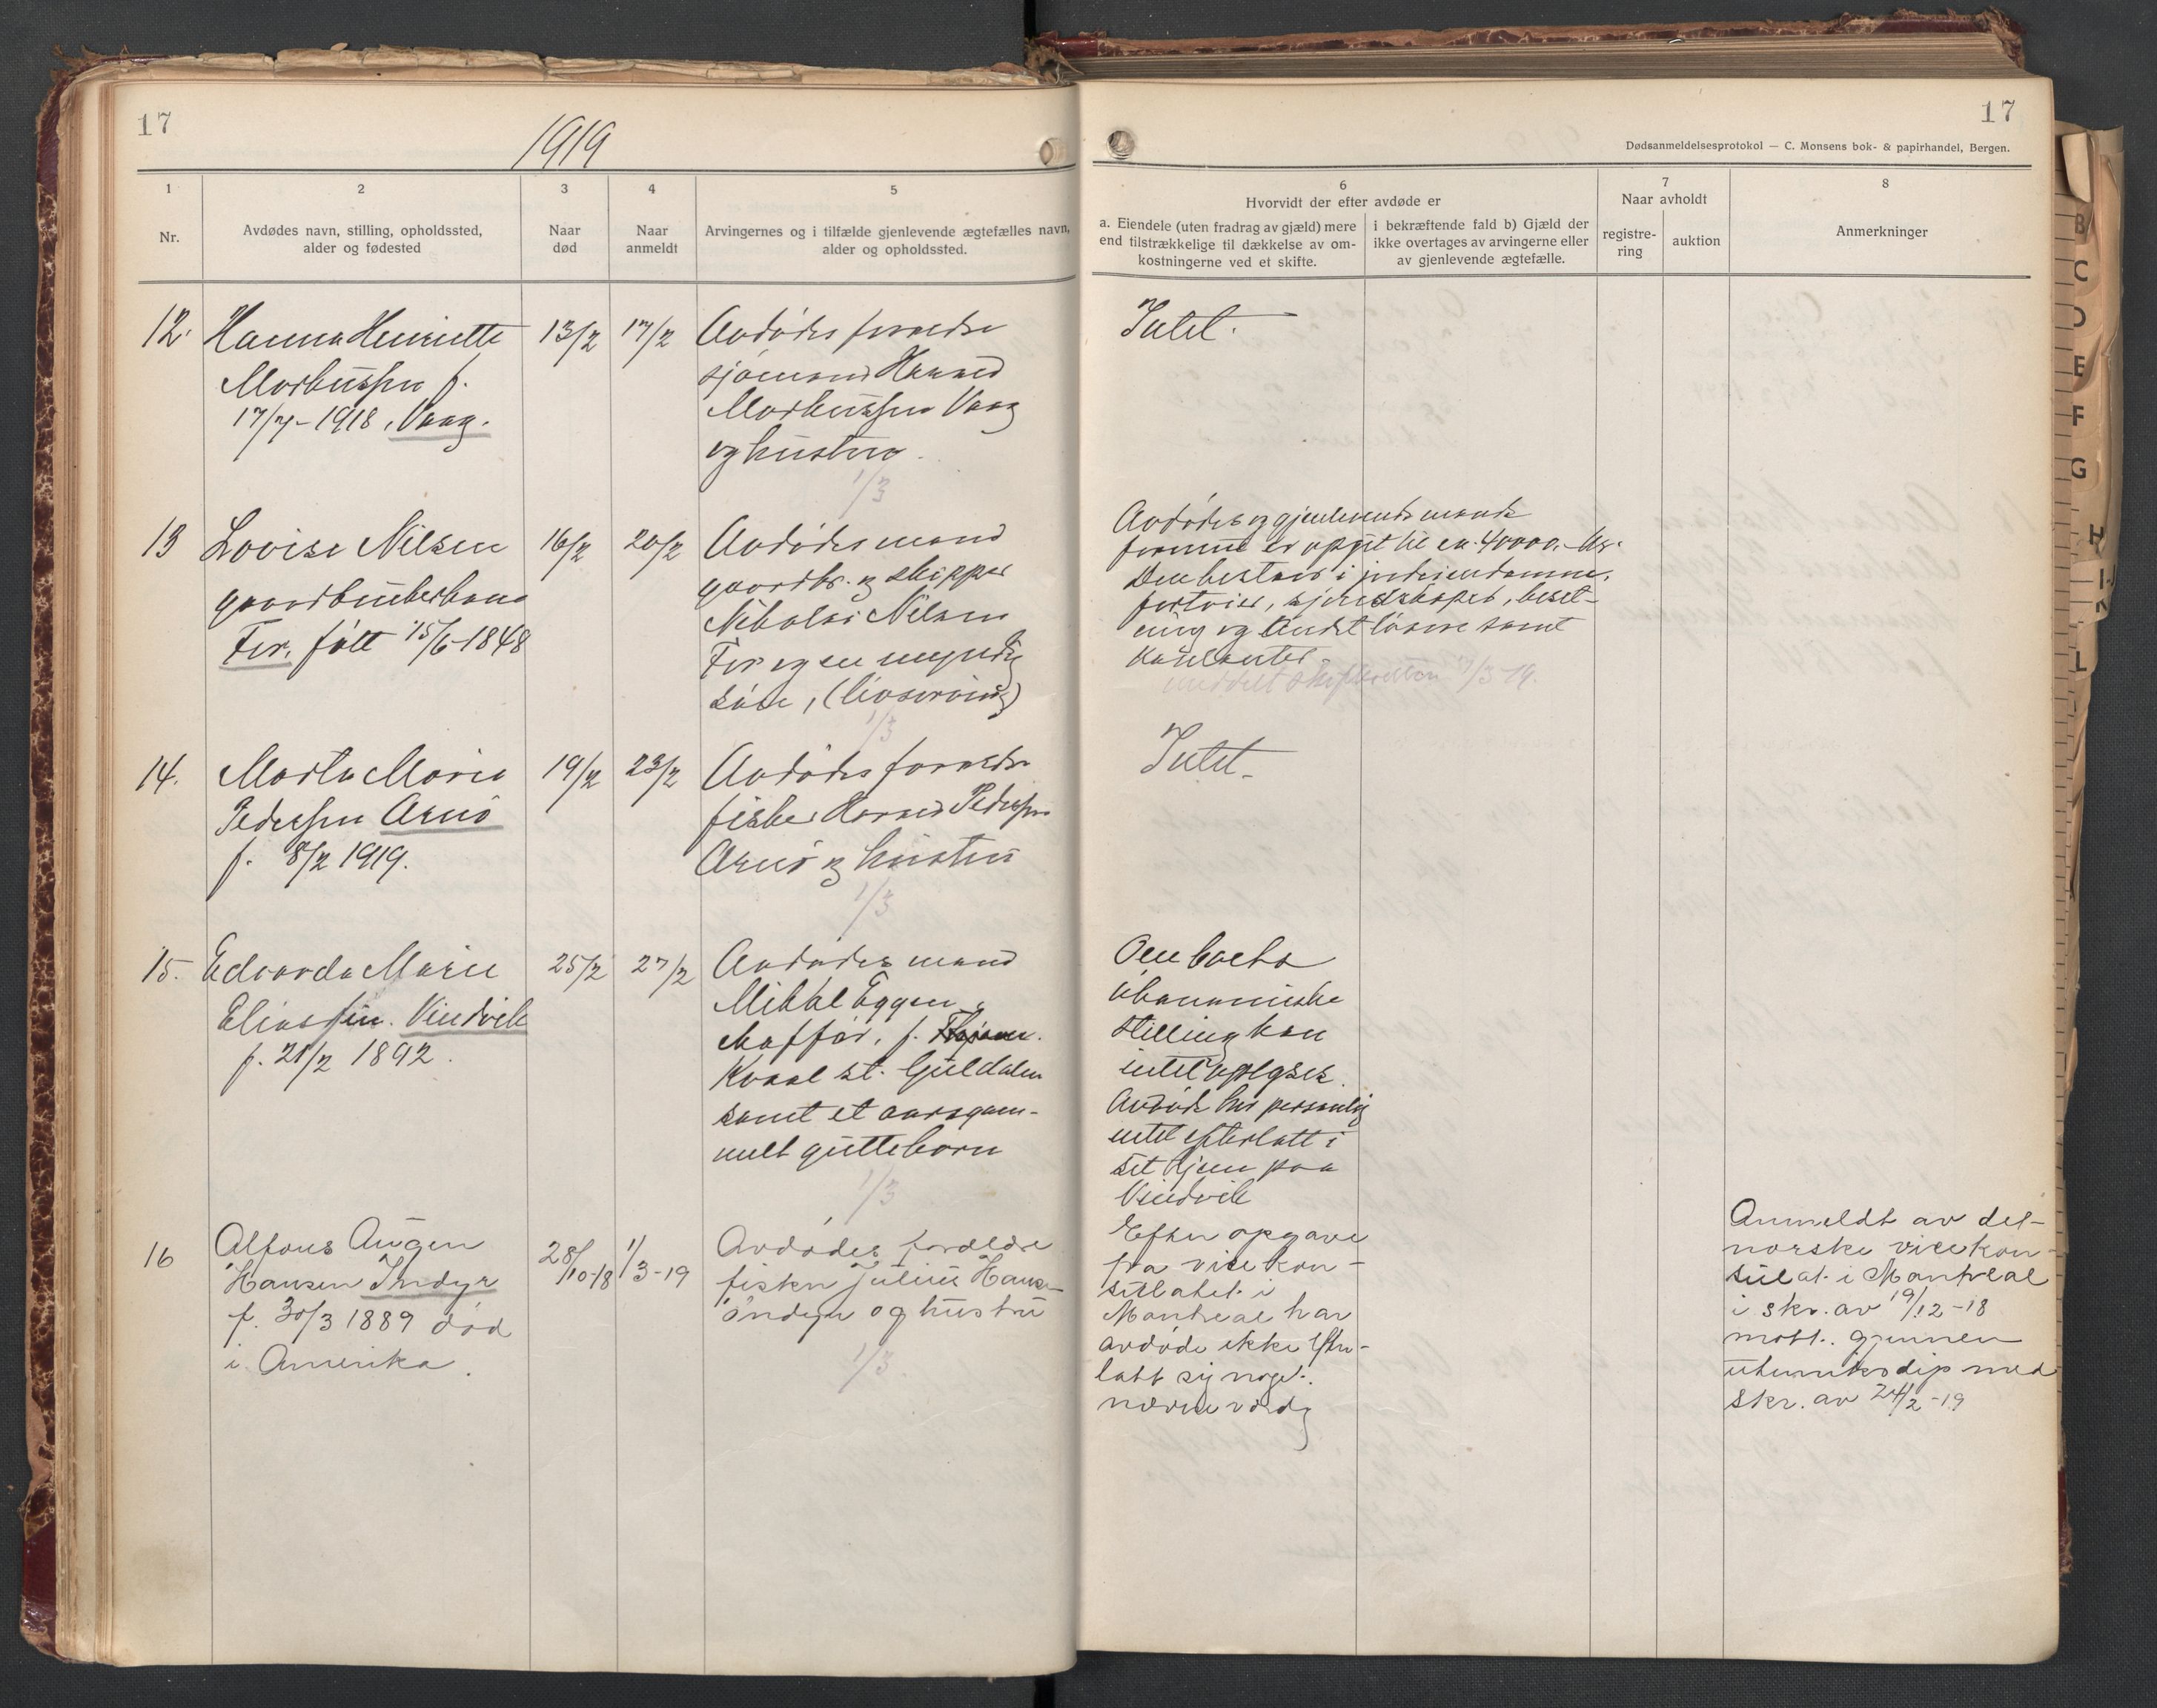 17
1919
17
Dødsanmeldelsesprotokol — C. Monsens bok- & papirhandel, Bergen.
1
Nr.
2
Avdødes navn, stilling, opholdssted,
alder og fødested
3
Naar
død
4
Naar
anmeldt
5
Arvingernes og i tilfælde gjenlevende ægtefælles navn,
alder og opholdssted.
6
Hvorvidt der efter avdøde er
a. Eiendele (uten fradrag av gjæld) mere
end tilstrækkelige til dækkelse av om-
kostningerne ved et skifte.
i bekræftende fald b) Gjæld der
ikke overtages av arvingerne eller
av gjenlevende ægtefælle.
7
Naar avholdt
registre-
ring
auktion
8
Anmerkninger
12.
Hanna Henriette
Markussen f.
17/7-1918, Vaag.
13/2
17/2
Avdødes forældre
sjømand
Markussen Vaag
og hustru.
1/3
Intet.
13
Lovise Nilsen
gaardbrukerkone
Fer, født 15/6-1848
16/2
20/2
Avdødes mand
gaardbr. og skipper
Nikolai Nilsen
Fer og en myndig
søn, (livsarving)
1/3
Avdødes og gjenlevende mands
formue er opgit til ca. 40000,- kr.
Den bestaar i jordeiendomme,
fartøier, sjøredskaper, beset-
ning og andet løsøre samt
kontanter.
meddelt skifteretten 1/3-19.
14.
Marta Marie
Pedersen Arnø
f. 8/2 1919.
19/2
23/2
Avdødes forældre
fisker Pedersen
Arnø og hustru
1/3
Intet.
15.
Edvarda Marie
Eliassen. Vindvik
f. 21/2 1892.
25/2
27/2
Avdødes mand
Mikal Eggen,
chaffør, f.
Kvaal st. Guldalen
samt et aarsgam-
melt guttebarn
1/3
Om boets
økonomiske
stilling kan
intet oplyses.
Avdøde har personlig
intet efterlatt i
sit hjem paa
Vindvik
16
Alfons Augen
Hansen Indyr
f. 30/3 1889 død
i Amerika.
28/10-18
1/3-19
Avdødes forældre
fisker Julius Hansen
Indyr og hustru
1/3
Efter opgave
fra vicekon-
sulatet i
Montreal har
avdøde ikke efter-
latt sig noget
nævneværdig
Anmeldt av det
norske vicekon-
sulat i Montreal
i skr. av 19/12-18
mott. gjennem
utenriksdep med
skr. av 24/2-19
B
C
D
E
F
G
H
I-J
K
L